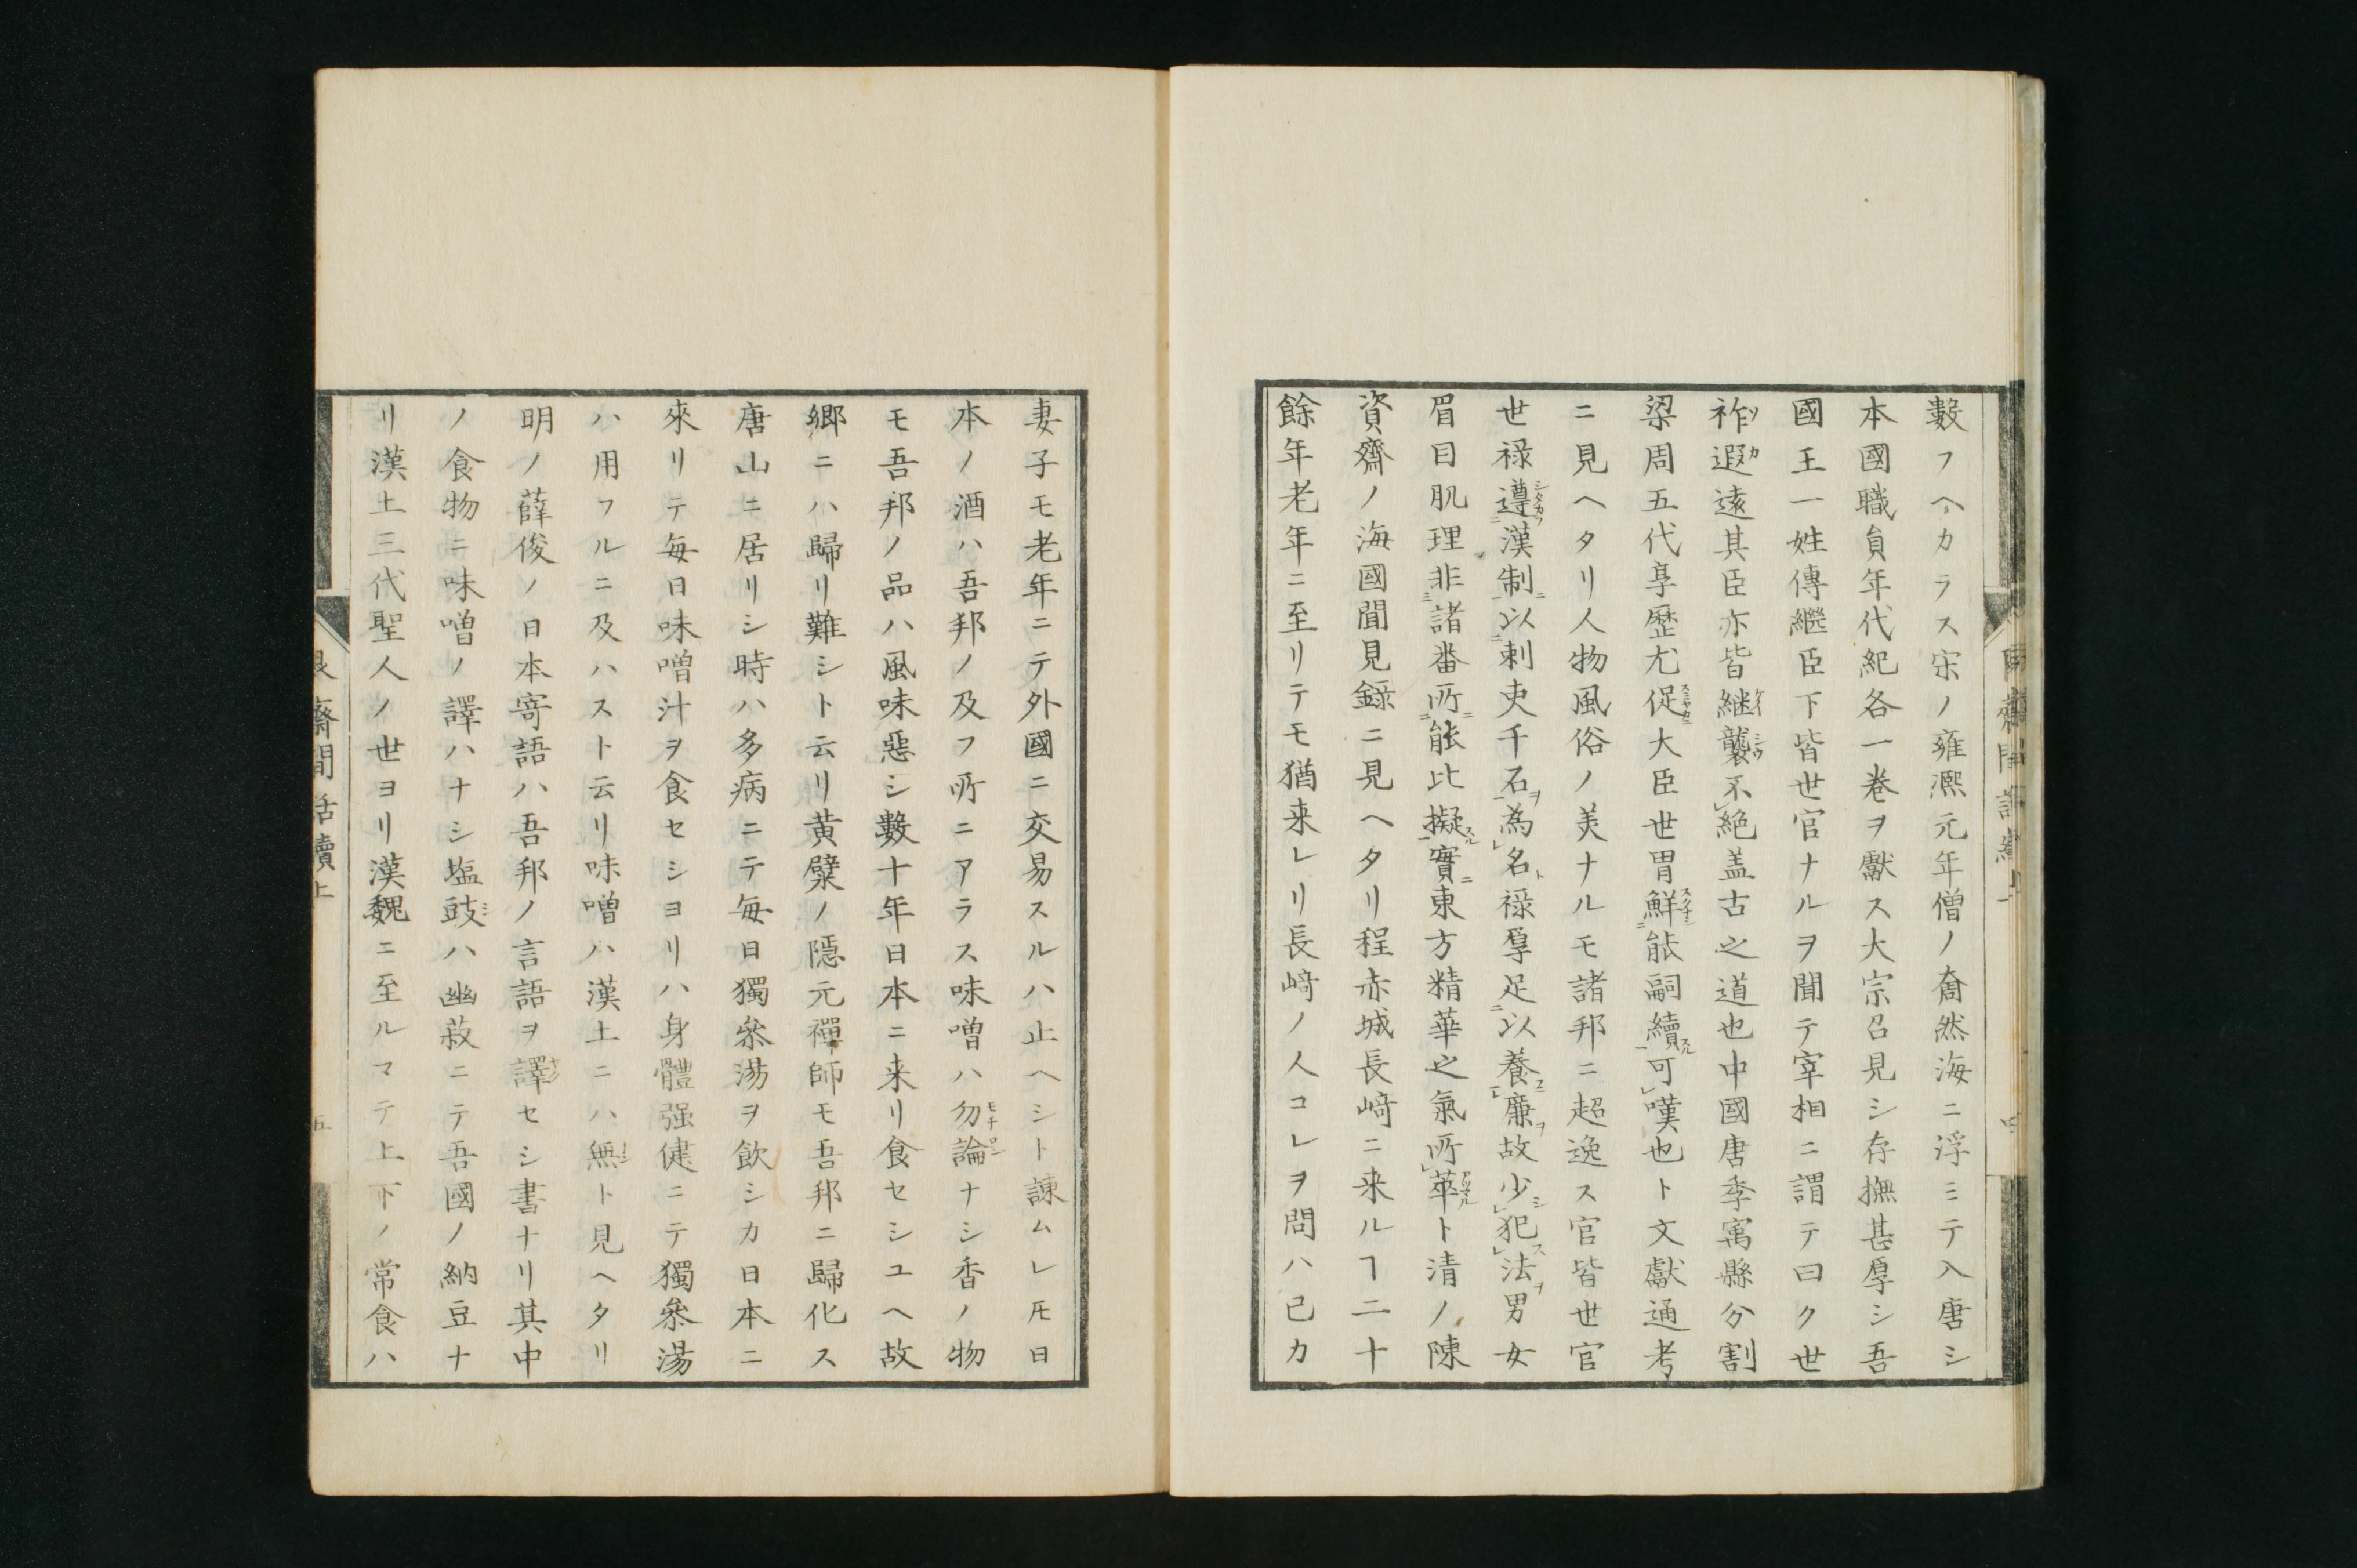 數フヘカラス宋ノ雍凞元年僧ノ奝然海ニ浮ミテ入唐シ
本國職員年代紀各一巻ヲ獻ス大宗召見シ存撫甚厚シ吾
國王一姓傳繼臣下皆世官ナルヲ聞テ宰相ニ謂テ曰ク世
祚遐遠其臣亦皆継襲不絶盖古之道也中國唐季寓縣分割
梁周五代享歴尤促大臣世胃鮮能嗣續可嘆也ト文獻通考
ニ見ヘタリ人物風俗ノ美ナルモ諸邦ニ超逸ス官皆世官
世禄遵漢制以刺吏千石為名禄厚足以養廉故少犯法男女
眉目肌理非諸番所能比擬實東方精華之氣所萃ト清ノ陳
資齋ノ海國聞見録ニ見ヘタリ程赤城長﨑ニ来ルヿ二十
餘年老年ニ至リテモ猶来レリ長﨑ノ人コレヲ問ハ己カ
妻子モ老年ニテ外國ニ交易スルハ止ヘシト諫ムレ𪜈日
本ノ酒ハ吾邦ノ及フ所ニアラス味噌ハ勿論ナシ香ノ物
モ吾邦ノ品ハ風味惡シ數十年日本ニ来リ食セシユヘ故
郷ニハ歸リ難シト云リ黄檗ノ隱元禪師モ吾邦ニ歸化ス
唐山ニ居リシ時ハ多病ニテ毎日獨參湯ヲ飲シカ日本ニ
來リテ毎日味噌汁ヲ食セシヨリハ身體强健ニテ獨參湯
ハ用フルニ及ハスト云リ味噌ハ漢土ニハ無ト見ヘタリ
明ノ薛俊ノ日本寄語ハ吾邦ノ言語ヲ譯セシ書ナリ其中
ノ食物ニ味噌ノ譯ハナシ塩豉ハ幽菽ニテ吾國ノ納豆ナ
リ漢土三代聖人ノ世ヨリ漢魏ニ至ルマテ上下ノ常食ハ
艮齋間話續上
五